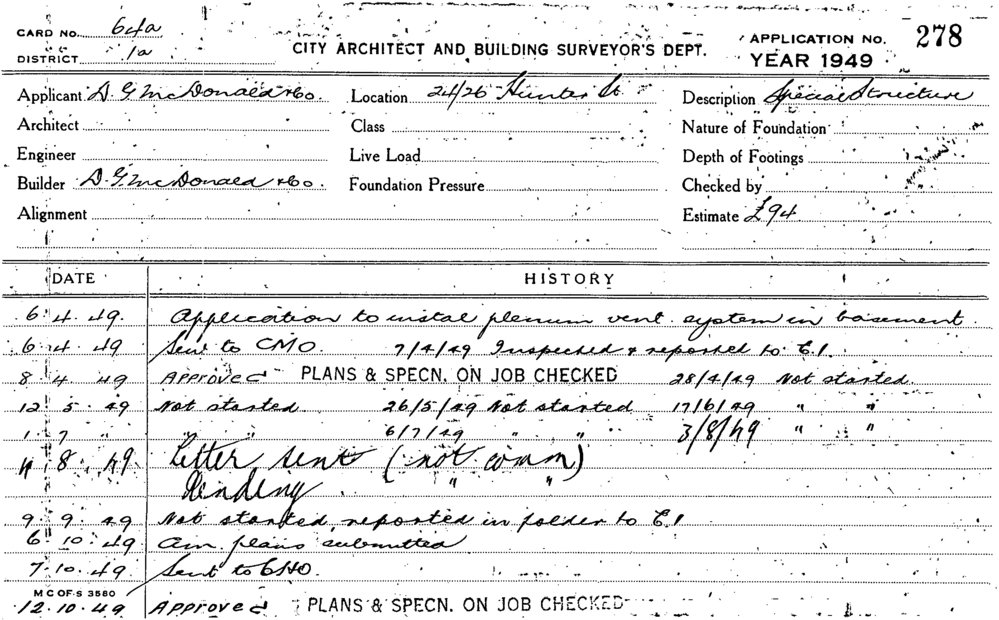 CARD No. 64a
DISTRICT 1a
CITY ARCHITECT AND BUILDING SURVEYOR'S DEPT.
APPLICATION No. 278
YEAR 1949
Applicant D. G. McDonald & Co. Location 24/26 Hunter St Description Special Structure
Architect Class Nature of Foundation
Engineer Live Load Depth of Footings
Builder D. G. McDonald & Co. Foundation Pressure Checked by
Alignment Estimate £94
DATE HISTORY
6. 4. 49. Application to instal plenum vent. system in basement.
6. 4. 49 Sent to CMO. 7/4/49 Inspected & reported to E.I.
8. 4. 49 Approved PLANS & SPECN. ON JOB CHECKED 28/4/49 Not started
12. 5. 49 Not started 26/5/49 Not started 17/6/49 " "
1. 7 " " " 6/7/49 " " 3/8/49 " "
4. 8. 49 Letter sent (not comm)
Pending " "
9. 9. 49 Not started, reported in folder to E.I
6. 10. 49 Am. plans submitted
7. 10. 49 Sent to CHO.
M C OF-S 3580
12. 10. 49 Approved PLANS & SPECN. ON JOB CHECKED